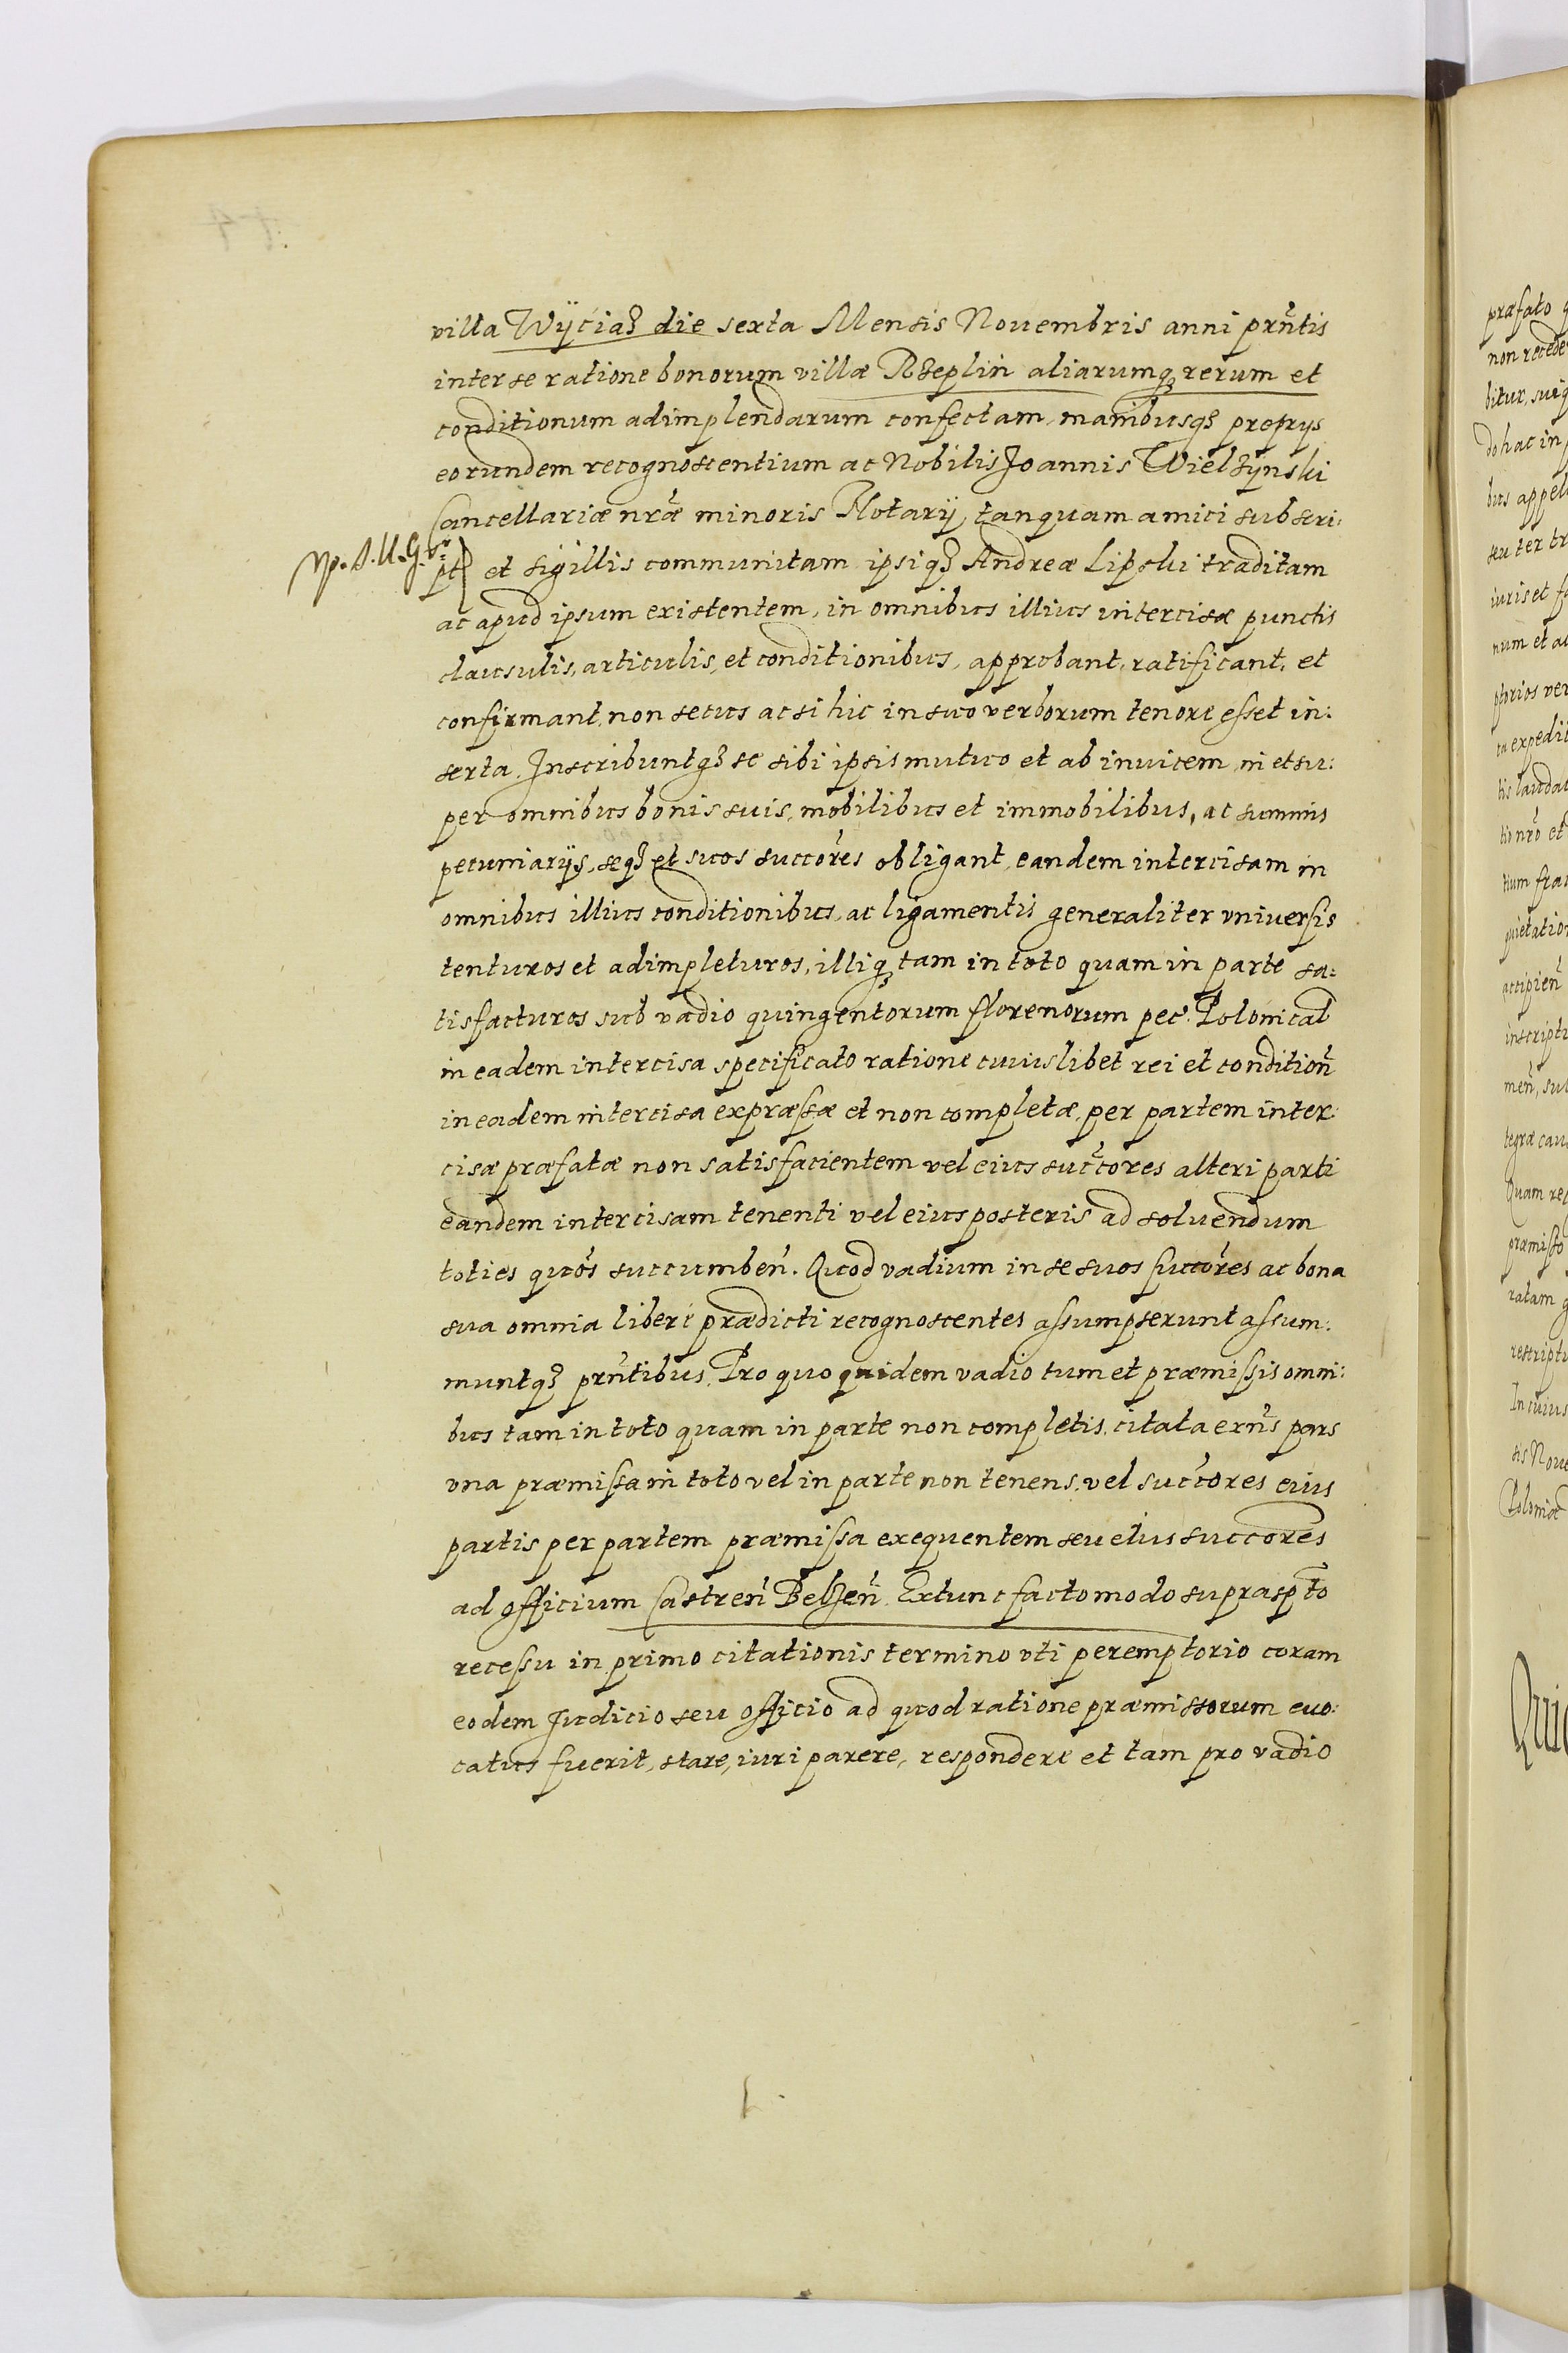 villa Wÿciaz̧ die sexta Mensis Nouembris anni prñtis
inter se ratione bonorum villæ Rzeplin aliarumq₃ rerum et
conditionum adimplendarum confectam, manibusq₃ proprÿs
eorundem recognoscentium ac Nobilis Joannis Wielzÿnski
Cancellariæ nr̃æ minoris Notarÿ, tanquam amici subscri:
pt et sigillis communitam ipsiq₃ Andreæ Lipski traditam
ac apud ipsum existentem, in omnibus illius intercisæ punctis
clausulis, articulis, et conditionibus, approbant, ratificant, et
confirmant, non secus ac si hic in suo verborum tenore esset in:
serta. Inscribuntq₃ se sibi ipsis mutuo et ab inuicem, in et su:
per omnibus bonis suis, mobilibus et immobilibus, ac summis
pecuniarÿs, seq₃ et suos succor̃es obligant, eandem intercisam in
omnibus illius conditionibus, ac ligamentis generaliter vniuersis
tenturos et adimpleturos, illiq₃ tam in toto quam in parte sa:
tisfacturos sub vadio quingentorum florenorum pec̃. Polonical
in eadem intercisa specificato ratione cuiuslibet rei et condition̄
in eadem intercisa expræssæ et non completæ, per partem inter:
cisæ præfatæ non satisfacientem vel eius suc̃cores alteri parti
eandem intercisam tenenti vel eius posteris ad soluendum
toties quo̊s succumben̄. Quod vadium in se suos succor̃es ac bona
sua omnia liberè prædicti recognoscentes assumpserunt assum:
muntq₃ prñtibus. Pro quo quidem vadio tum et præmissis omni:
bus tam in toto quam in parte non completis, citata exñs pars
vna præmissa in toto vel in parte non tenens, vel suc̃cores eius
partis per partem præmissa exequentem seu eius succores
ad officium Castren̄ Belzen̄. Extunc facto modo suprasp̃to
recessu in primo citationis termino vti peremptorio coram
eodem Judicio seu officio ad quod ratione præmissorum euo:
catus fuerit, stare, iuri parere, respondere et tam pro vadio